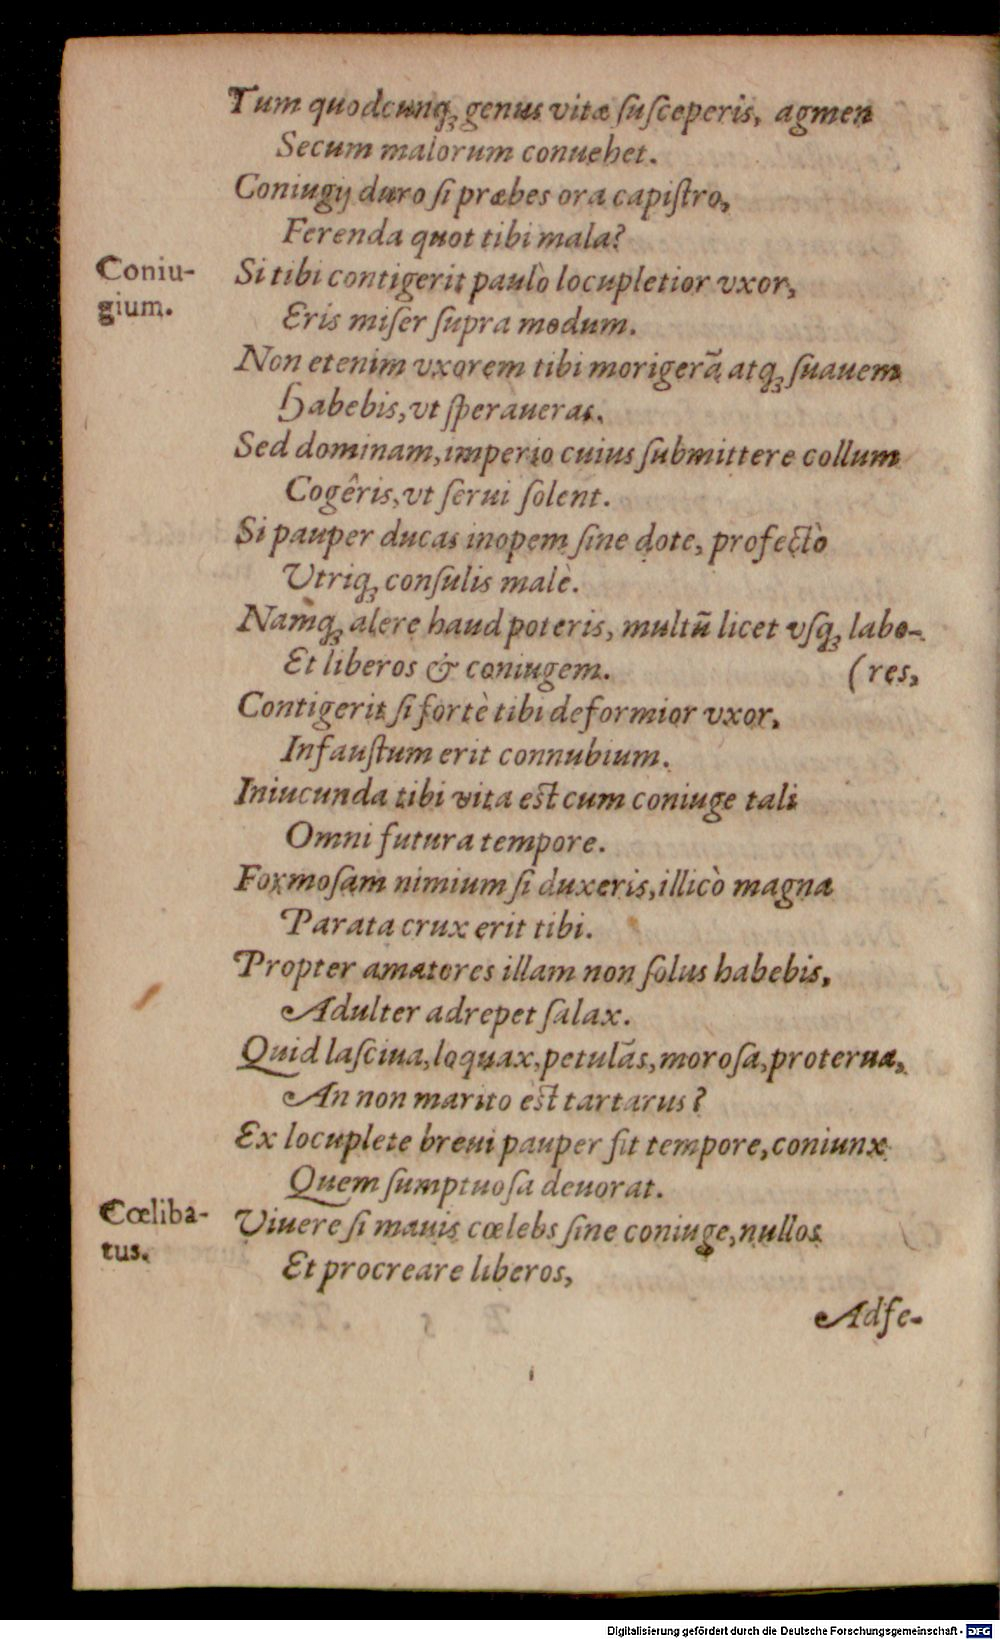 Tum quodcunq; genus vitæ ſuſceperis, agmen
Secum malorum conuehet.
Coniugij duro ſi præbes ora capiſtro,
Ferenda quot tibi mala?
Coniu-
gium.
Si tibi contigerit paulò locupletior vxor,
Eris miſer ſupra modum.
Non etenim vxorem tibi morigerā atq; ſuauem
Habebis, vt ſperaueras.
Sed dominam, imperio cuius ſubmittere collum
Cogêris, vt ſerui ſolent.
Si pauper ducas inopem ſine dote, profectò
Vtriq; conſulis malè.
Namq; alere haud poteris, multū licet vſq; labo-
Et liberos & coniugem. (res,
Contigerit ſi fortè tibi deformior vxor,
Infauſtum erit connubium.
Iniucunda tibi vita eſt cum coniuge tali
Omni futura tempore.
Formoſam nimium ſi duxeris, illicò magna
Parata crux erit tibi.
Propter amatores illam non ſolus habebis,
Adulter adrepet ſalax.
Quid laſciua, loquax, petulās, moroſa, proterua,
An non marito eſt tartarus?
Ex locuplete breui pauper fit tempore, coniunx
Quem ſumptuoſa deuorat.
Cœliba-
tus.
Viuere ſi mauis cœlebs ſine coniuge, nullos
Et procreare liberos,
Adfe-
Digitalisierung gefördert durch die Deutsche Forschungsgemeinschaft - DFG